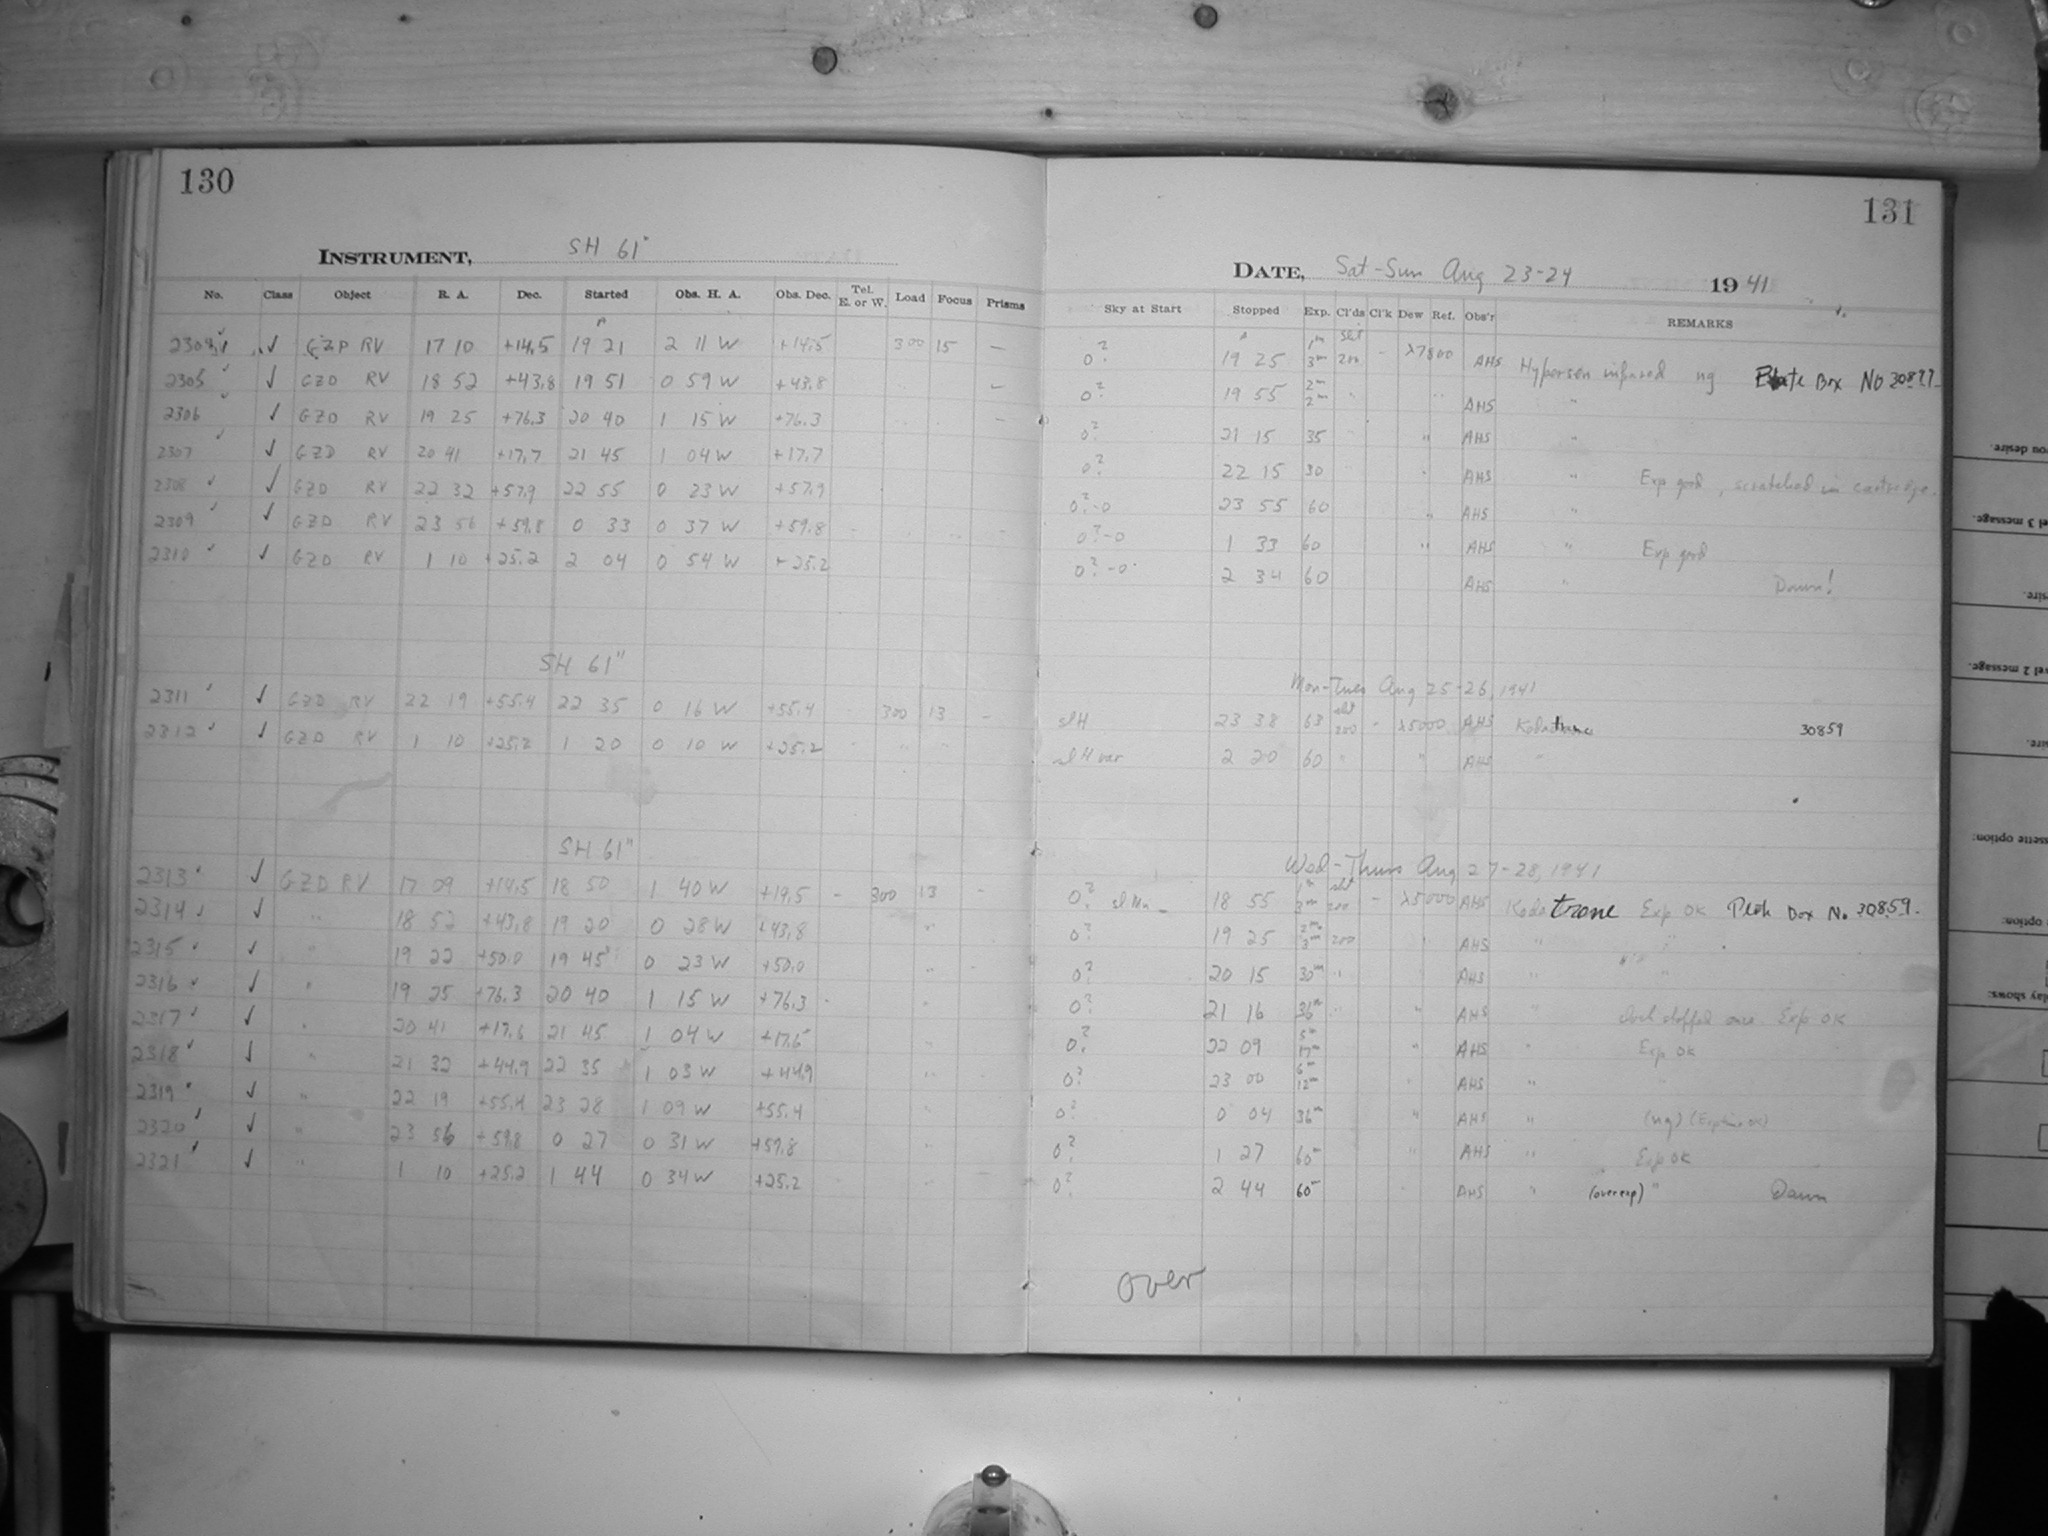 130
INSTRUMENT, SH 61"
No. Class Object R. A. Dec. Started Obs. H. A. Obs. Dec. Tel. E. or W. Load Focus Prisms
2304 ✓ GZD RV 17 10 +14.5 19 21 2 11 W +14.5 300 15 —
2305 ✓ GZD RV 18 52 +43.8 19 51 0 59 W +43.8 —
2306 ✓ GZD RV 19 25 +76.3 20 40 1 15 W +76.3 —
2307 ✓ GZD RV 20 41 +17.7 21 45 1 04 W +17.7
2308 ✓ GZD RV 22 32 +57.9 22 55 0 23 W +57.9
2309 ✓ GZD RV 23 56 +59.8 0 33 0 37 W +59.8
2310 ✓ GZD RV 1 10 +25.2 2 04 0 54 W +25.2
SH 61"
2311 ✓ GZD RV 22 19 +55.4 22 35 0 16 W +55.4 - 300 13 -
2312 ✓ GZD RV 1 10 +25.2 1 20 0 10 W +25.2 " "
SH 61"
2313 ✓ GZD RV 17 09 +14.5 18 50 1 40 W +14.5 - 300 13 -
2314 ✓ " 18 52 +43.8 19 20 0 28 W +43.8 "
2315 ✓ " 19 22 +50.0 19 45 0 23 W +50.0 "
2316 ✓ " 19 25 +76.3 20 40 1 15 W +76.3 "
2317 ✓ " 20 41 +17.6 21 45 1 04 W +17.6 "
2318 ✓ " 21 32 +44.9 22 35 1 03 W +44.9 "
2319 ✓ " 22 19 +55.4 23 28 1 09 W +55.4 "
2320 ✓ " 23 56 +59.8 0 27 0 31 W +59.8 "
2321 ✓ " 1 10 +25.2 1 44 0 34 W +25.2 "
131
DATE, Sat-Sun Aug 23-24 1941
Sky at Start Stopped Exp. Cl'ds Cl'k Dew Ref. Obs'r REMARKS
0? 19 25 1m 3m slit 200 - λ7800 AHS Hypersen infrared ng Plate Box No 30877
0? 19 55 2m 2m " " AHS "
0? 21 15 35 " AHS "
0? 22 15 30 " AHS " Exp good, scratched in cartridge.
0?-0 23 55 60 " AHS "
0?-0 1 33 60 " AHS " Exp good
0?-0 2 34 60 AHS " Dawn!
Mon-Tues Aug 25-26, 1941
slH 23 38 63 slit 200 - λ5000 AHS 30859
slH var 2 20 60 " " AHS "
Wed-Thurs Aug 27-28, 1941
0? 18 55 1m 3m slit 200 - λ5000 AHS Kodatrone Exp OK Box No 30859.
0? 19 25 2m 3m 200 " AHS " "
0? 20 15 30m " " AHS " "
0? 21 16 36m " " AHS " clock stopped once Exp OK
0? 22 09 5m 17m " AHS " Exp OK
0? 23 00 6m 12m " AHS " "
0? 0 04 36m " AHS " (ng) (Exp time OK)
0? 1 27 60m " AHS " Exp OK
0? 2 44 60m AHS " (over exp) " Dawn
over
you desire.
el 3 message.
sire.
vel 2 message.
sire.
ssette option:
option:
play shows: